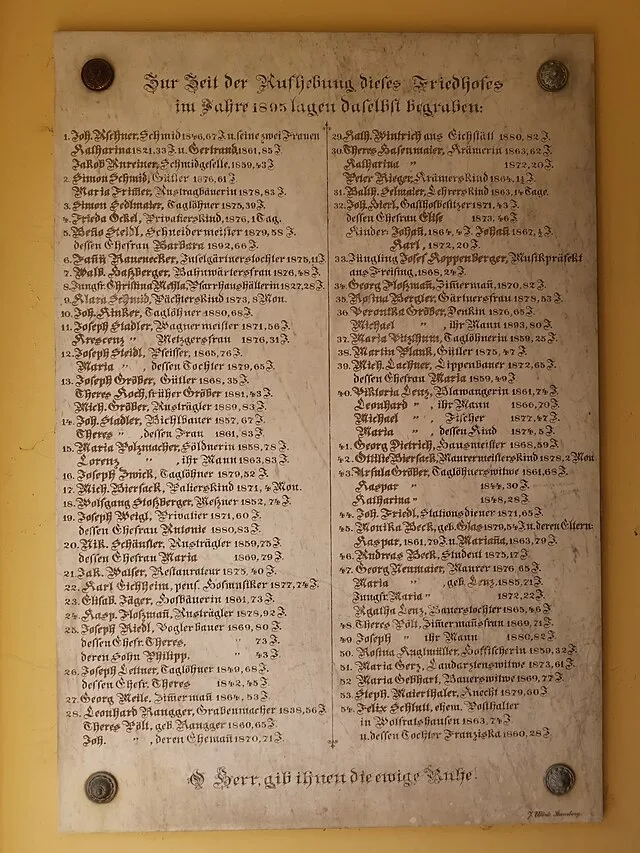 Zur Zeit der Aufhebung dieses Friedhofes
im Jahre 1895 lagen daselbst begraben:
1. Joh. Aschner, Schmid 1846, 67 J. u. seine zwei Frauen
Katharina 1821, 33 J. u. Gertraud 1861, 85 J
Jakob Schmidgeselle, 1859, 43 J
2. Simon Schmid, Gütler 1876, 61 J
Maria Austragbäuerin 1878, 83 J.
3. Simon Sedlmaier, Taglöhner 1875, 39 J.
4. Frieda Privatierskind, 1876, 1 Tag.
5. Beno Steidl, Schneidermeister 1879, 58 J.
dessen Ehefrau Barbara 1892, 66 J.
6. Rauenecker, Inselgärtnerstochter 1875, 11 J
7. Walb. Haßberger, Bahnwärtersfrau 1876, 48 J.
8. Jungfr. Christina Pfarrhaushälterin 1827, 28 J.
9. Klara Schmid, Pächterskind 1873, 8 Mon.
10. Joh. Taglöhner 1880, 68 J.
11. Joseph Stadler, Wagnermeister 1871, 56 J.
Krescenz " Metzgersfrau 1876, 31 J.
12. Joseph Steidl, 1865, 76 J.
Maria " dessen Tochter 1879, 65 J.
13. Joseph Gröber, Gütler 1868, 35 J.
Theres Koch, früher Gröber 1881, 43 J.
Mich. Gröber, Austrägler 1889, 83 J.
14. Joh. Stadler, Biehlbauer 1857, 67 J.
Theres " , dessen Frau 1861, 83 J.
15. Maria Holzmacher, Söldnerin 1858, 78 J.
Lorenz " , ihr Mann 1863, 83 J.
16. Joseph Zwick, Taglöhner 1879, 52 J.
17. Mich. Biersack, Palierskind 1871, 4 Mon.
18. Wolfgang Stoßberger, Meßner 1852, 74 J.
19. Joseph Weigl, Privatier 1871, 60 J.
dessen Ehefrau Antonie 1880, 83 J.
20. Nik. Schäußler, Austrägler 1859, 75 J.
dessen Ehefrau Maria 1869, 79 J.
21. Jak. Walser, Restaurateur 1875, 40 J.
22. Karl Eichheim, pens. Hofmusiker 1877, 74 J.
23. Elisab. Jäger, Hofbäuerin 1861, 73 J.
24. Kasp. Floßmañ, Austrägler 1878, 92 J.
25. Joseph Riedl, Voglerbauer 1869, 80 J.
dessen Ehefr. Theres, " 73 J.
deren Sohn Philipp. " 43 J.
26. Joseph Lettner, Taglöhner 1849, 68 J.
dessen Ehefr. Theres 1842, 45 J.
27. Georg Zimerman 1864, 53 J.
28. Leonhard Rangger, Grabenmacher 1838, 56 J
Theres Pölt, geb. Rangger 1860, 65 J.
Joh. " , deren Ehemañ 1870, 71 J.
29. Kath. Wintrich aus Eichstätt 1880, 82 J.
30. Theres Hasenmaier, Krämerin 1863, 62 J.
Katharina " 1872, 20 J.
Peter Rieger, Krämerskind 1864, 1½ J.
31. Balth. Lehrerskind 1863, 14 Tage.
32. Joh. Hierl, Gasthofbesitzer 1871, 43 J.
dessen Ehefrau Elise 1873, 46 J
Kinder: Johañ, 1864, J. Johañ 1867, ½ J.
Karl, 1872, 20 J.
33. Jüngling Josef Koppenberger, Musikpräfekt
aus Freising, 1868, 24 J.
34. Georg Floßmañ, Zimerman, 1870, 82 J.
35. Rosina Bergler, Gärtnersfrau 1878, 53 J.
36. Veronika Gröber, 1876, 65 J.
Michael " , ihr Mann 1893, 80 J.
37. Maria Vitzthum, Taglöhnerin 1859, 25 J.
38. Martin Plank, Gütler 1875, 47 J.
39. Mich. Lachner, Lippenbauer 1872, 65 J.
dessen Ehefrau Maria 1859, 49 J
40. Viktoria Lenz, 1861, 74 J.
Leonhard " , ihr Mann 1860, 70 J.
Michael " Fischer 1877, 47 J.
Maria " , dessen Kind 1874, 5 J.
41. Georg Dietrich, Hausmeister 1868, 59 J.
42. Ottilie Biersack, Maurermeisterskind 1878, 2 Mon
43. Ursula Gröber, Taglöhnerswitwe 1861, 68 J.
Kaspar " 1844, 30 J.
Katharina " 1848, 28 J.
44. Joh. Friedl, Stationsdiener 1871, 65 J.
45. Monika Beck, geb. Glas 1879, 54 J. u. deren Eltern:
Kaspar, 1861, 79 J. u. Mariaña, 1863, 79 J.
46. Andreas Beck, Student 1875, 17 J.
47. Georg Neumaier, Maurer 1876, 65 J.
Maria " , geb. Lenz, 1885, 71 J.
Jungfr. Maria " 1872, 22 J.
Agatha Lenz, Bauerstochter 1865, 46 J
48. Theres Pölt, Zimermañsfrau 1869, 71 J.
49. Joseph " ihr Mann 1880, 82 J.
50. Rosina Hoffischerin 1859, 32 J.
51. Maria Gerz, Landarztenswitwe 1873, 61 J.
52. Maria Gebhart, Bauerswitwe 1869, 77 J.
53. Steph. Maierthaler, Knecht 1879, 60 J.
54. Felix Schlutt, ehem. Posthalter
in Wolfratshausen 1863, 74 J
u. dessen Tochter Franziska 1860, 28 J.
O Herr, gib ihnen die ewige Ruhe!